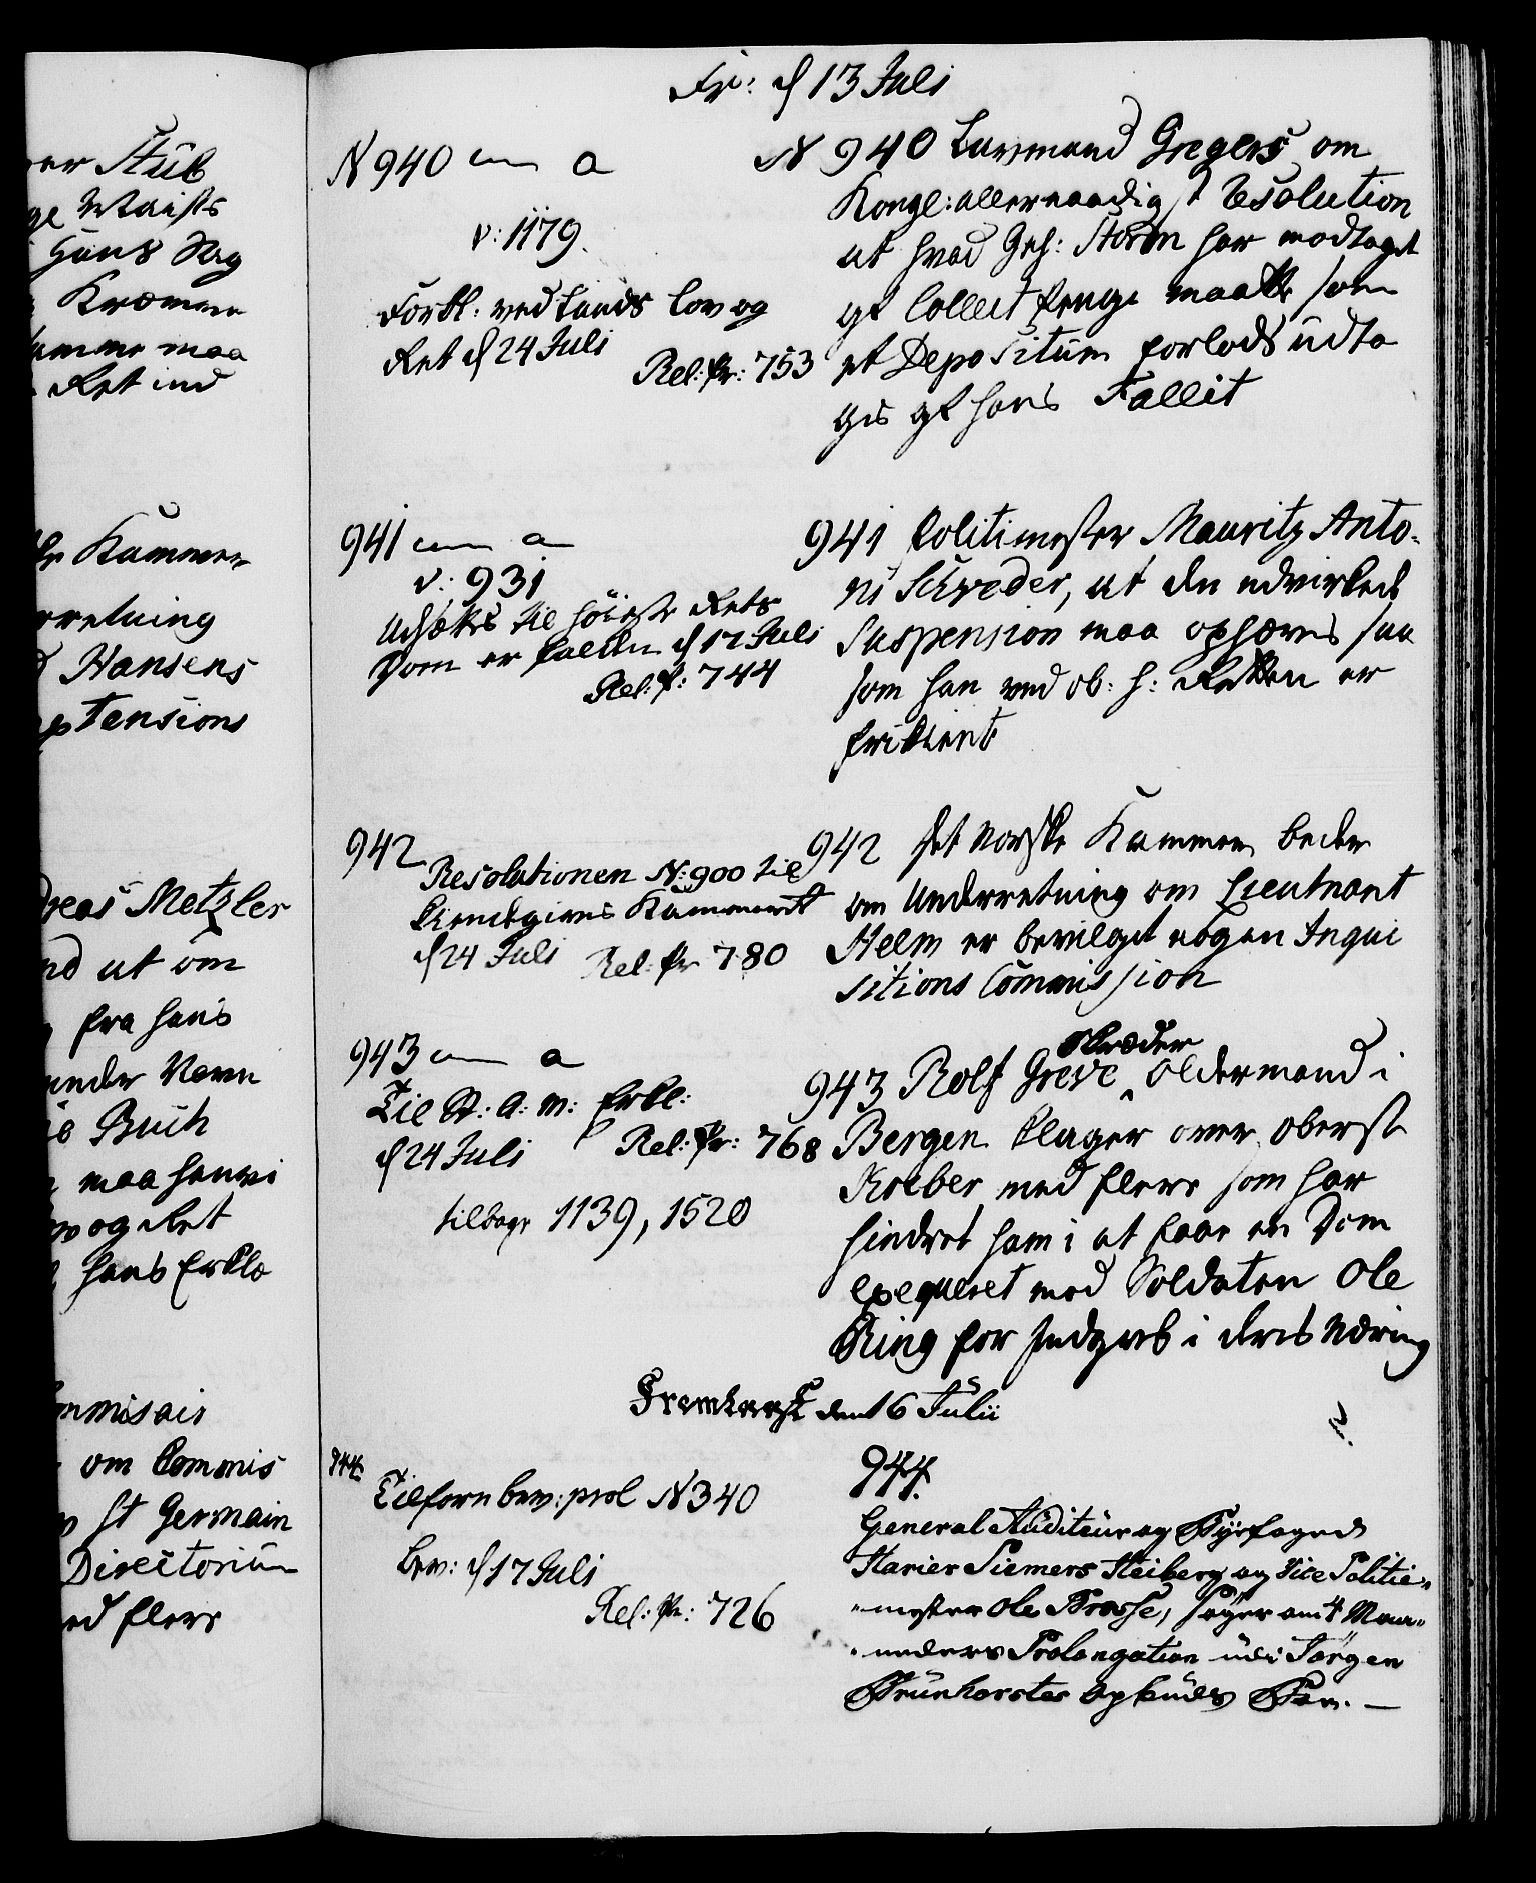 Fr: d 13 Juli
N 940 cum a
v: 1179.
Forkl. ved Lands Lov og
Ret d 24 Juli
Rel: Pr: 753
N 940 Laumand Gregers om
Kongl: allernaadigst Resolution
at hvad Geh: Storm har modtaget
af Collect penge maatte som
et Depositum forlods udta
ges af hans Fallit
941 cum a
v: 931
Udsættes til höieste Rets
Dom er falden d 17 Juli
Rel: P: 744
941 Politimester Mauritz Anto-
ni Schrøder, at den udvirkede
Suspension maa ophæves saa
som han ved ob: h: Retten er
frikient
942
Resolutionen N: 900 til
kiendegives Kammeret
d 24 Juli Rel: Pr 780
942 Det Norske Kammer beder
om Underretning om Lieutnant
Helm er bevilget nogen Inqui
sitions Commission
943 cum a
Til St: A: m: Erkl:
d 24 Juli Rel: Pr: 768
tilbage 1139, 1520
Skræder
943 Rolf Greve ^ Oldermand i
Bergen klager over Oberst
Kroeber med flere som har
hindret ham i at faae en Dom
exeqveret mod Soldaten Ole
Ring for Indgreb i deres Næring
Fremlagt den 16 Julii
944.
Tilforn bev: prol N 340
bev: d 17 Juli
Rel: Pr: 726
944.
General Auditeur og Byefoged
Siemers Heiberg og Vice Politie-
mester Ole Brosse, søger om 4 Maa-
neders Prolongation udi Jørgen
Brunhorstes Opbuds Boe. —
er Stub
Hans
Kræmer
samme maa
Ret ind
Kammer
rretning
Hansens
tensions
dreas Metzler
nd at om
fra hans
under Navn
Buch
maa henvi
ov og Ret
hans Erklæ
ommisair
om Commis
St Germain
Directorium
ed flere